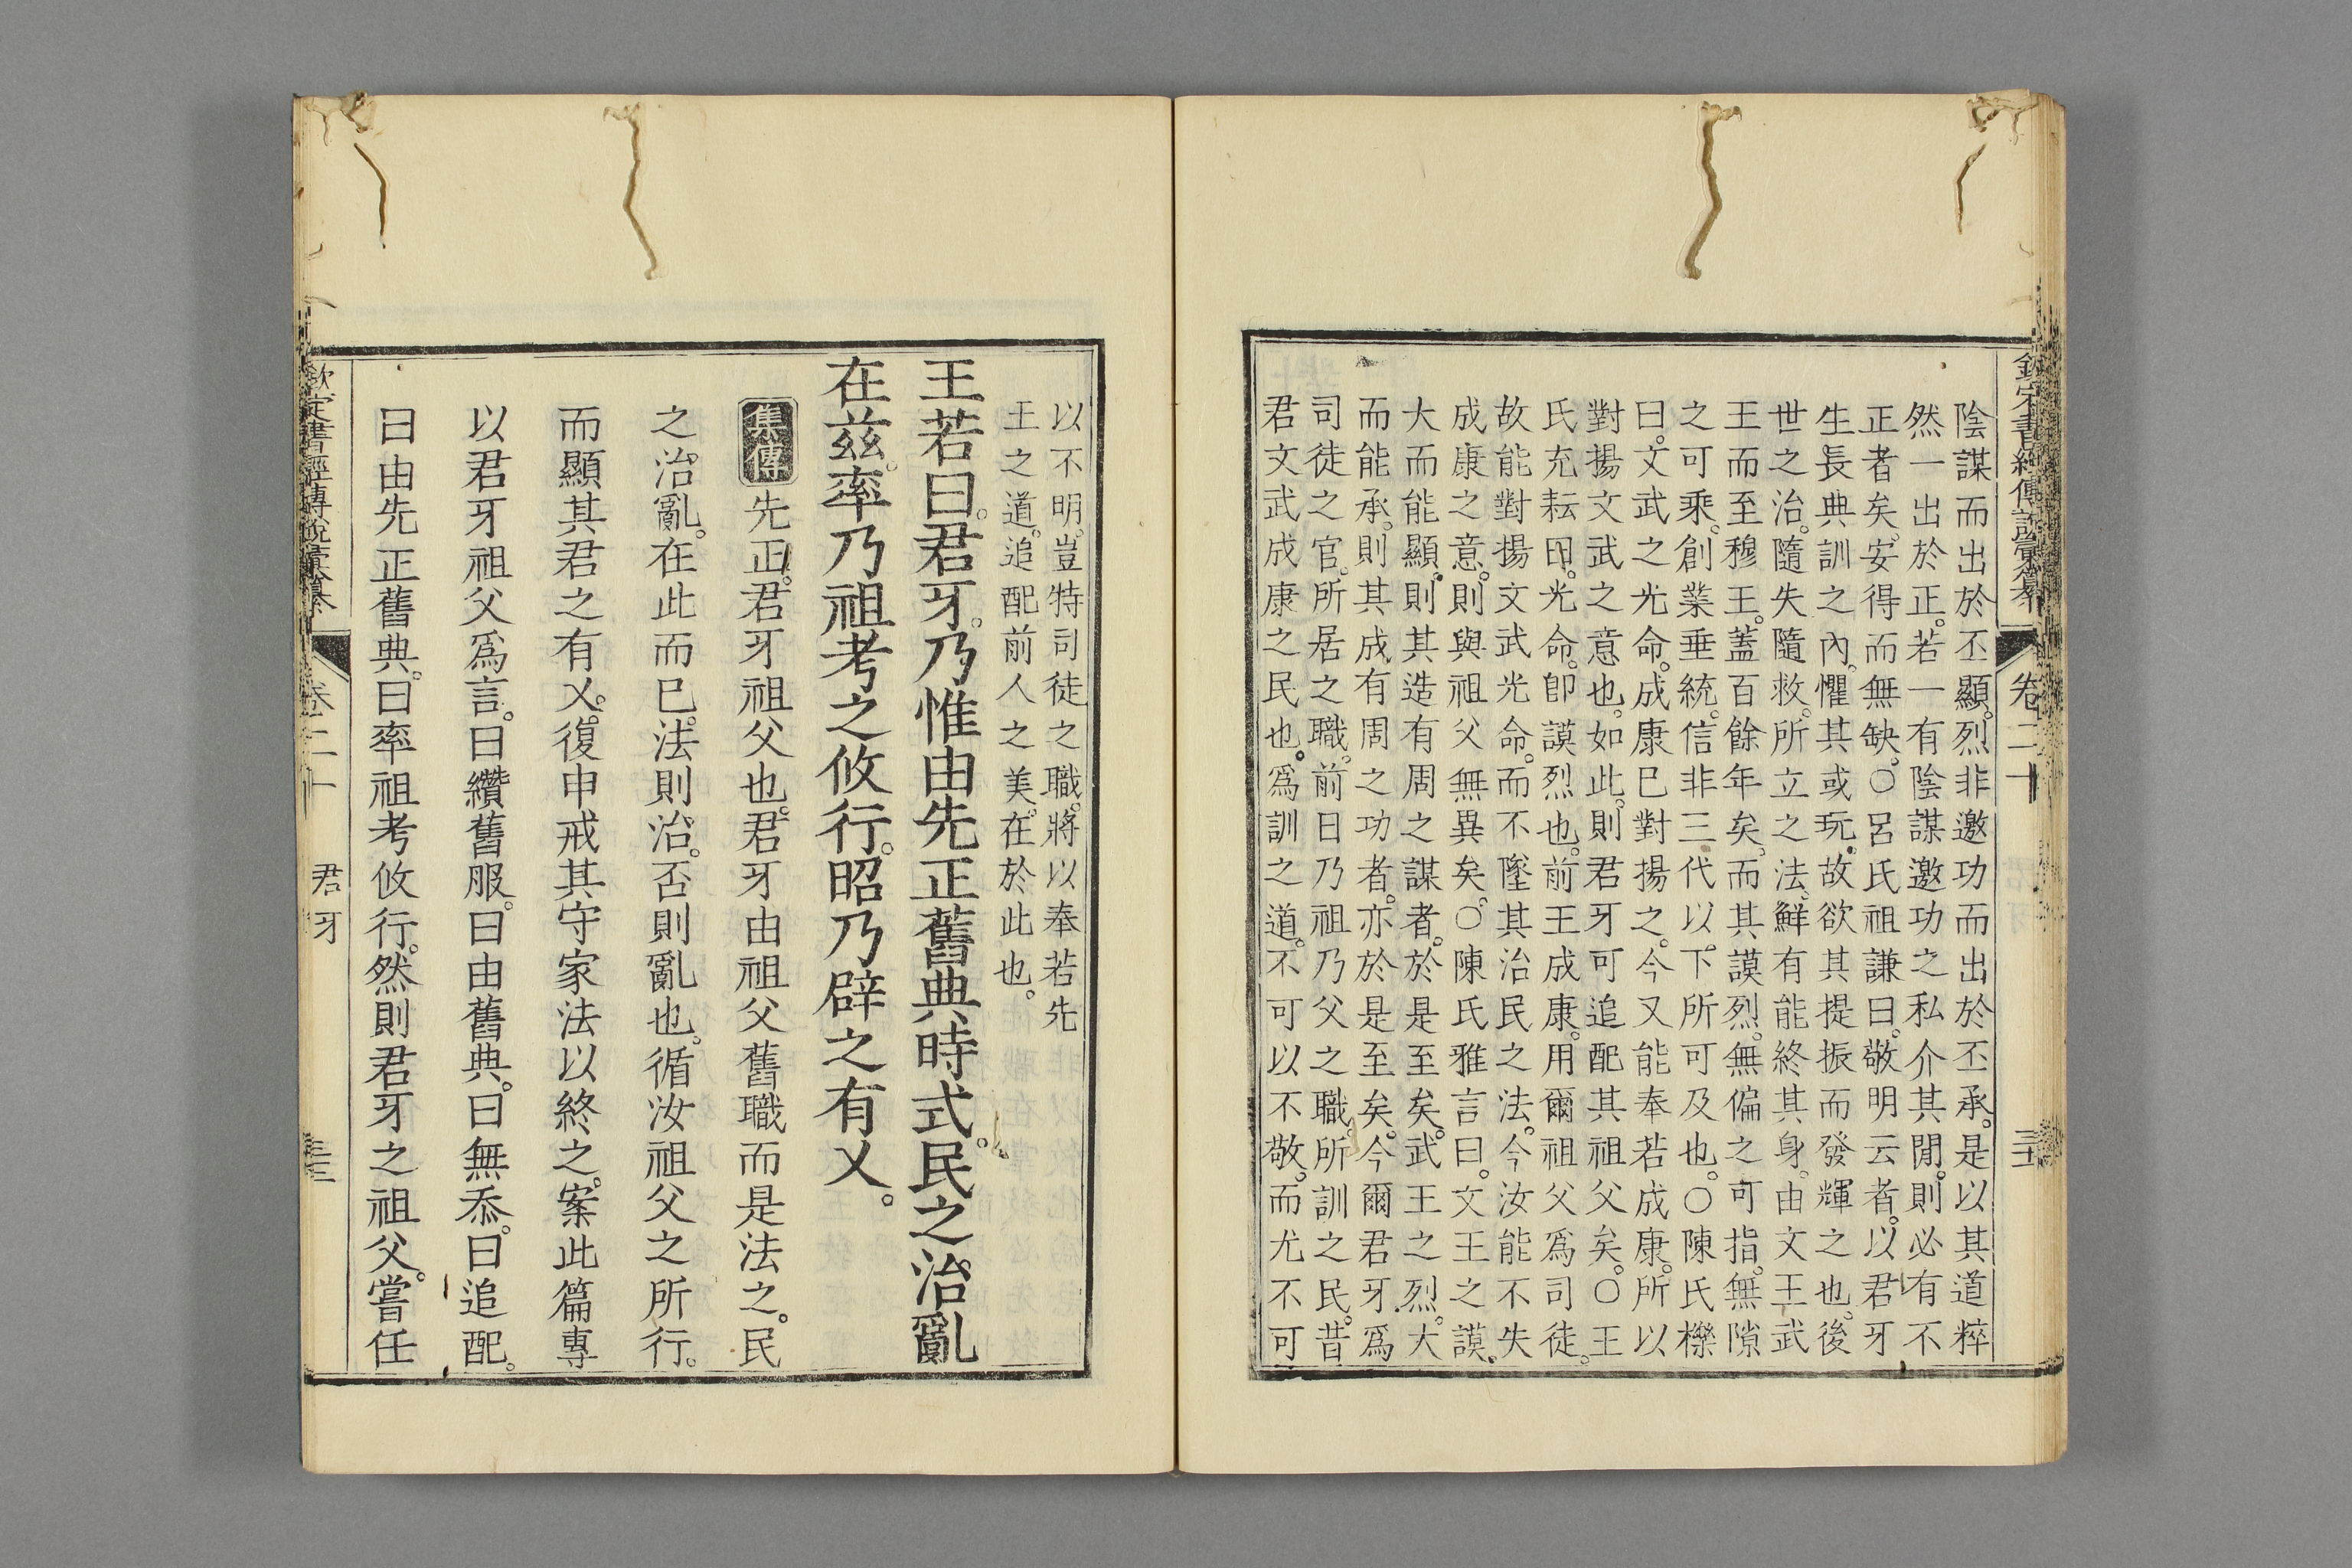 欽定書經傳說彙纂 卷二十
陰謀而出於丕顯。烈非邀功而出於丕承。是以其道粹
然一出於正。若一有陰謀邀功之私介其閒。則必有不
正者矣。安得而無缺。○呂氏祖謙曰。敬明云者。以君牙
生長典訓之內。懼其或玩。故欲其提振而發輝之也。後
世之治。隨失隨救。所立之法。鮮有能終其身。由文王武
王而至穆王。蓋百餘年矣。而其謨烈。無偏之可指。無隙
之可乘。創業垂統。信非三代以下所可及也。○陳氏櫟
曰。文武之光命。成康已對揚之。今又能奉若成康。所以
對揚文武之意也。如此。則君牙可追配其祖父矣。○王
氏充耘曰。光命。卽謨烈也。前王成康。用爾祖父爲司徒。
故能對揚文武光命。而不墜其治民之法。今汝能不失
成康之意。則與祖父無異矣。○陳氏雅言曰。文王之謨。
大而能顯。則其造有周之謀者。於是至矣。武王之烈。大
而能承。則其成有周之功者。亦於是至矣。今爾君牙爲
司徒之官。所居之職。前日乃祖乃父之職。所訓之民。昔
君文武成康之民也。爲訓之道。不可以不敬。而尤不可
以不明。豈特司徒之職。將以奉若先
王之道。追配前人之美。在於此也。
王若曰。君牙。乃惟由先正舊典時式。民之治亂
在茲。率乃祖考之攸行。昭乃辟之有乂。
集傳 先正。君牙祖父也。君牙由祖父舊職而是法之。民
之治亂。在此而已。法則治。否則亂也。循汝祖父之所行。
而顯其君之有乂。復申戒其守家法以終之。案此篇專
以君牙祖父爲言。曰纘舊服。曰由舊典。曰無忝。曰追配。
曰由先正舊典。曰率祖考攸行。然則君牙之祖父。嘗任
欽定書經傳說彙纂 卷二十 君牙